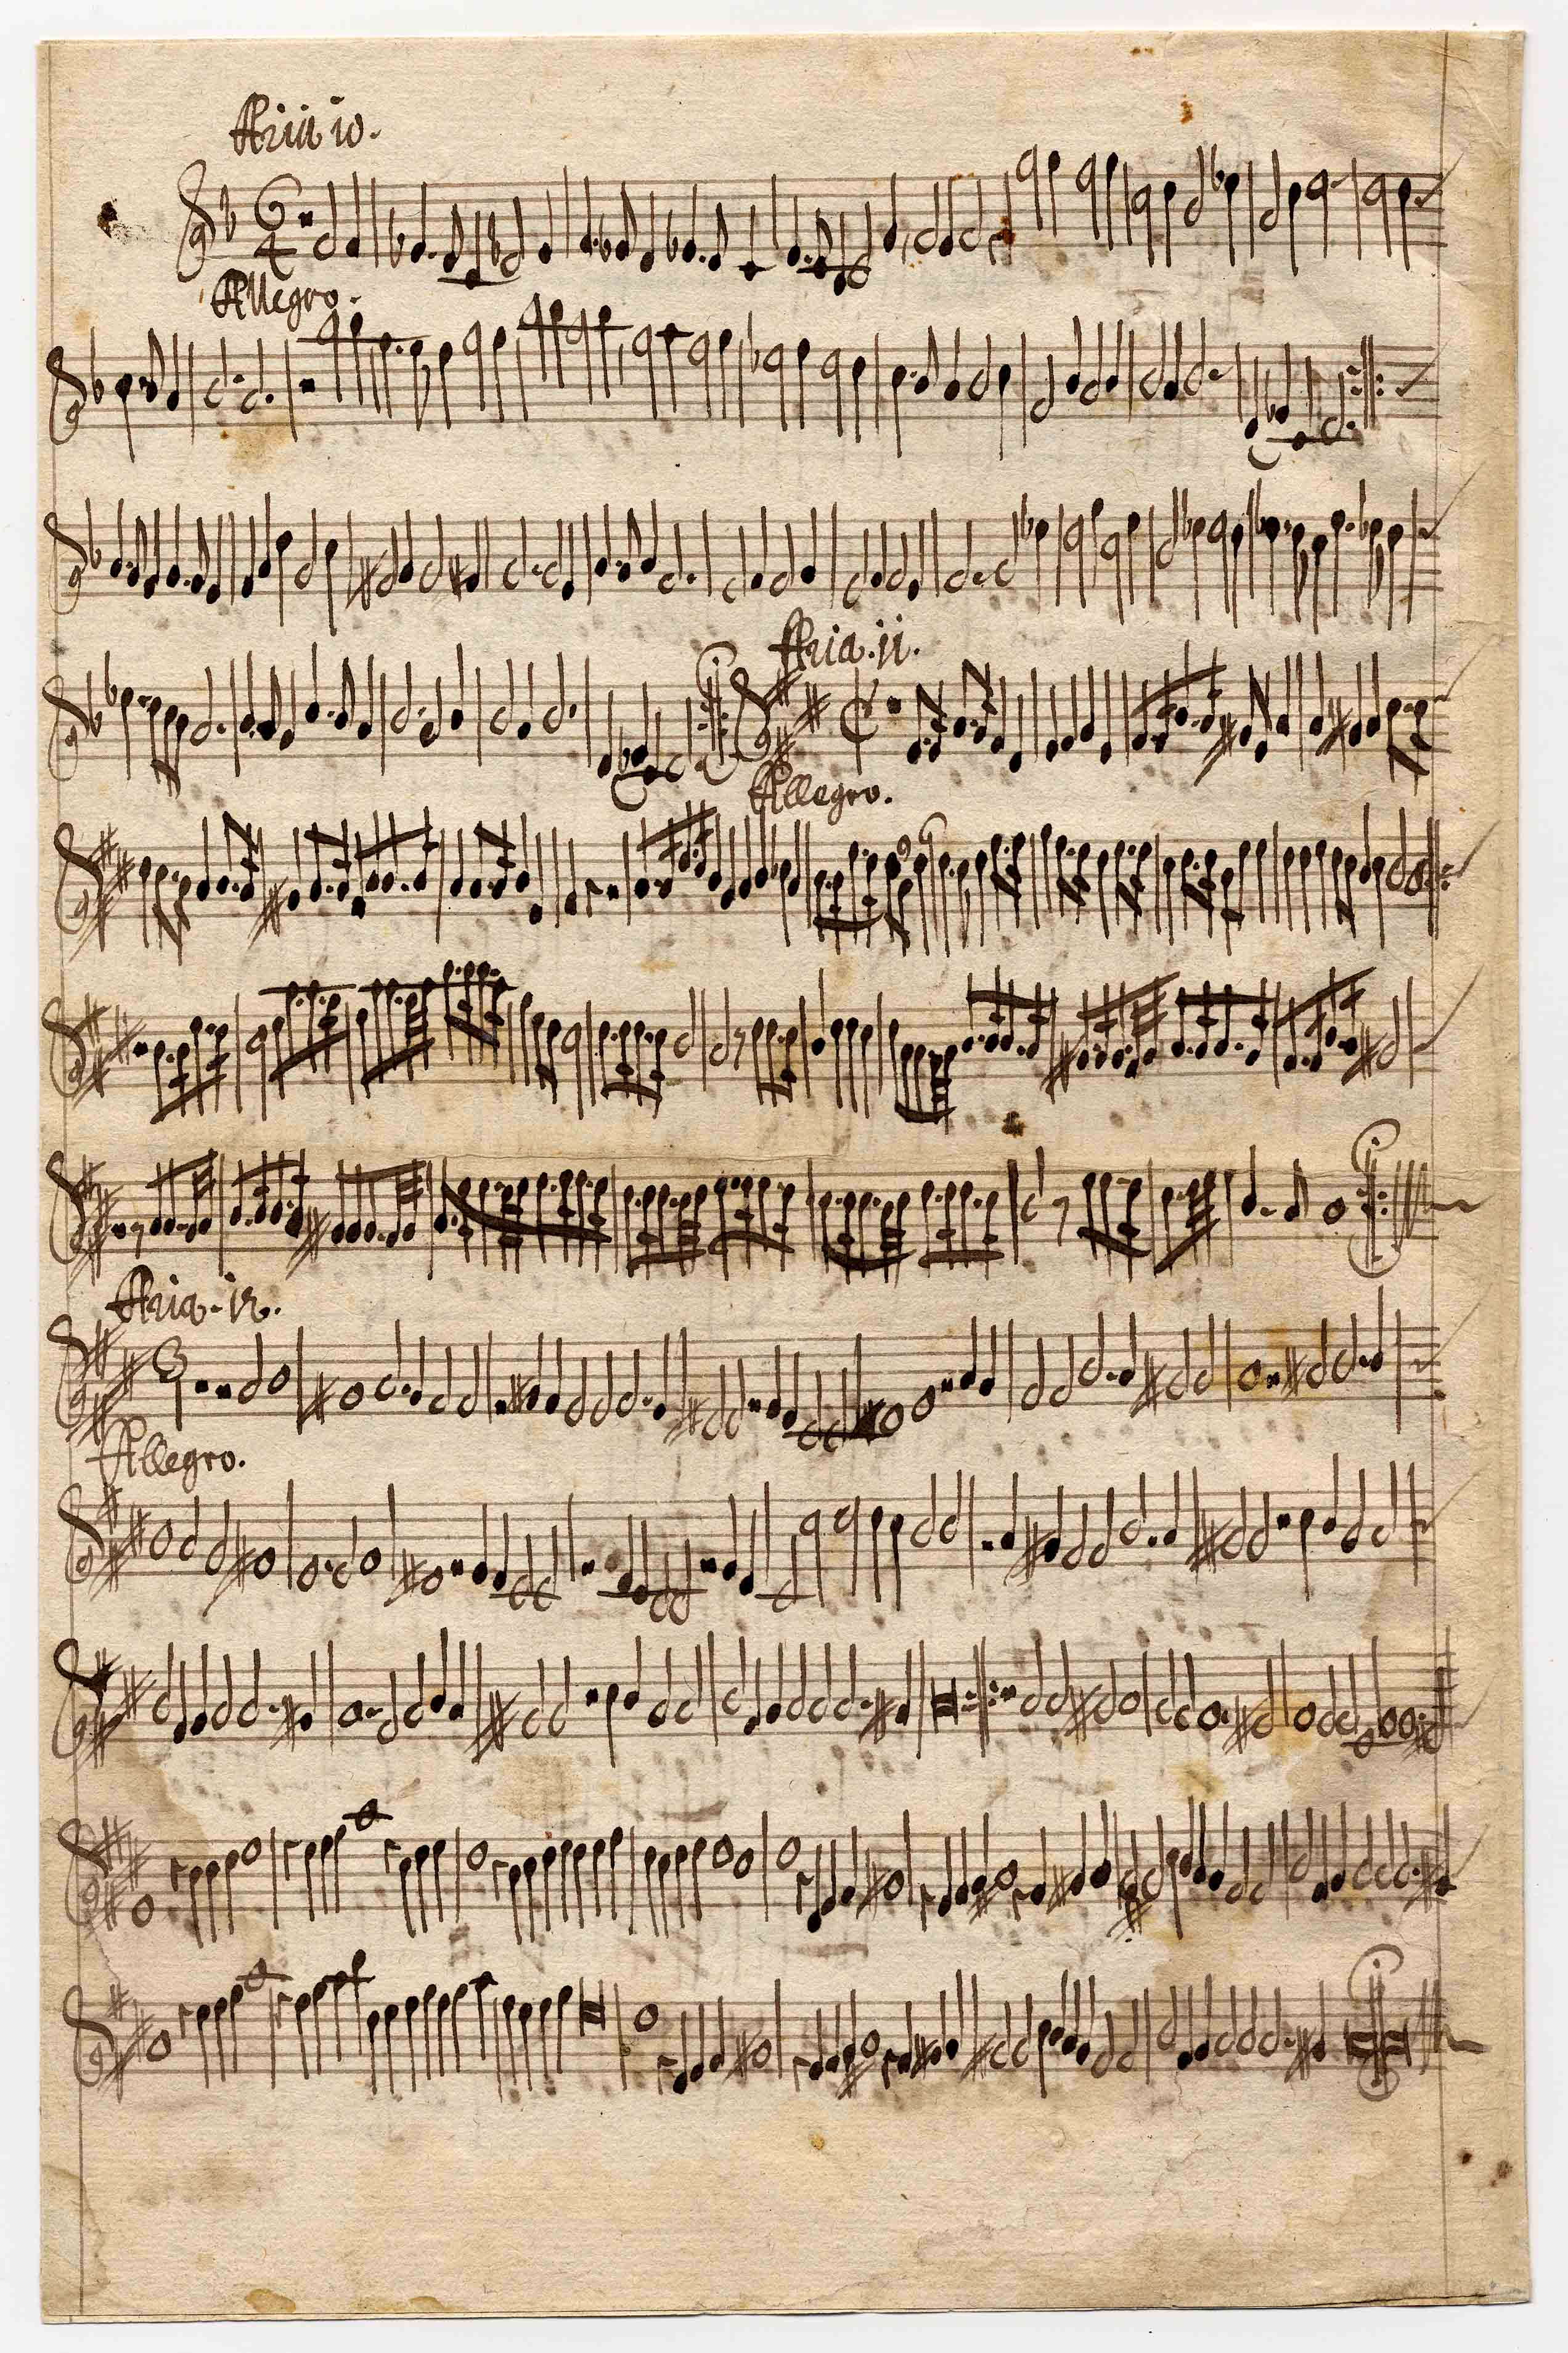 Aria 10.
6
4
Allegro.
Aria. 11.
Allegro.
Aria. 12.
3
Allegro.